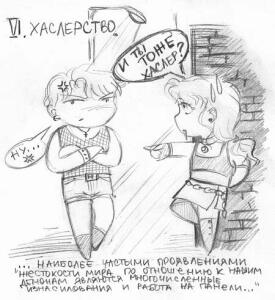 VI. ХАСЛЕРСТВО.
И ТЫ
ТОЖЕ
ХАСЛЕР?
НУ...
"... НАИБОЛЕЕ ЧАСТЫМИ ПРОЯВЛЕНИЯМИ
ЖЕСТОКОСТИ МИРА ПО ОТНОШЕНИЮ К НАШИМ
ДЕМОНАМ ЯВЛЯЮТСЯ МНОГОЧИСЛЕННЫЕ
ИЗНАСИЛОВАНИЯ И РАБОТА НА ПАНЕЛИ..."